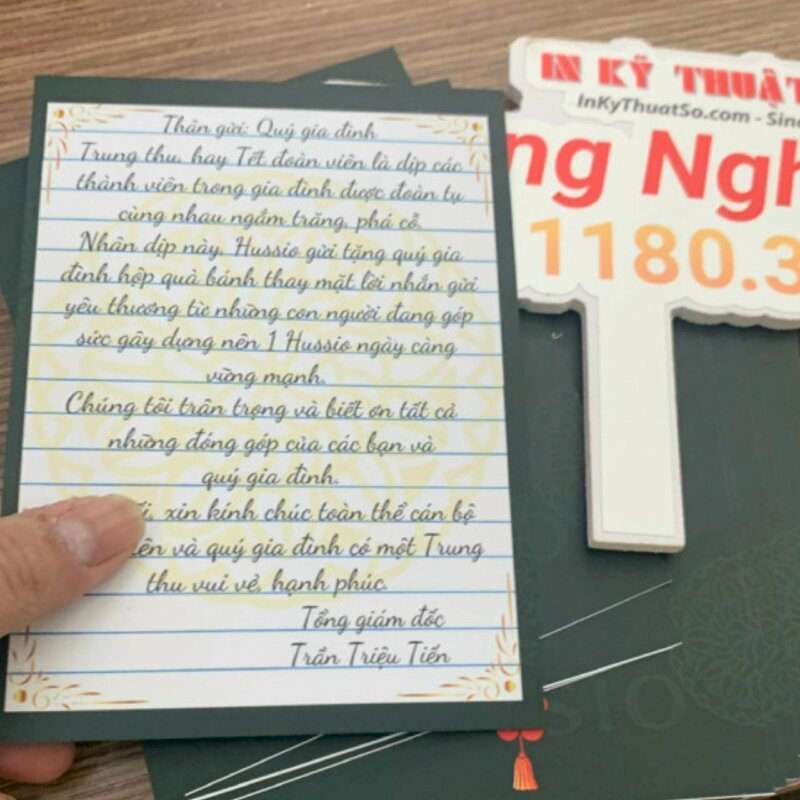 Thân gửi: Quý gia đình
Trung thu, hay Tết đoàn viên là dịp các
thành viên trong gia đình được đoàn tụ
cùng nhau ngắm trăng, phá cỗ.
Nhân dịp này, Hussio gửi tặng quý gia
đình hộp quà bánh thay mặt lời nhắn gửi
yêu thương từ những con người đang góp
sức gây dựng nên 1 Hussio ngày càng
vững mạnh.
Chúng tôi trân trọng và biết ơn tất cả
những đóng góp của các bạn và
quý gia đình.
xin kính chúc toàn thể cán bộ
và quý gia đình có một Trung
thu vui vẻ, hạnh phúc.
Tổng giám đốc
Trần Triệu Tiến
IN KỸ THUẬT
InKyThuatSo.com - Sinc
ng Ngh
1180.3